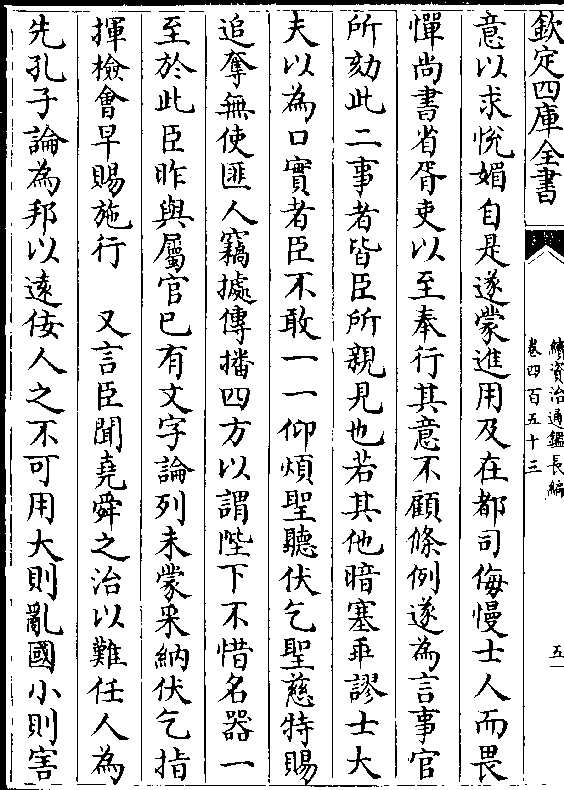 欽定四庫全書
續資治通鑑長編
卷四百五十三
五
意以求悅媚自是遂蒙進用及在都司侮慢士人而畏
憚尚書省胥吏以至奉行其意不顧條例遂為言事官
所劾此二事者皆臣所親見也若其他暗塞乖謬士大
夫以為口實者臣不敢一一仰煩聖聽伏乞聖慈特賜
追奪無使匪人竊據傳播四方以謂陛下不惜名器一
至於此臣昨與屬官已有文字論列未蒙采納伏乞指
揮檢會早賜施行　又言臣聞堯舜之治以難任人為
先孔子論為邦以遠佞人之不可用大則亂國小則害